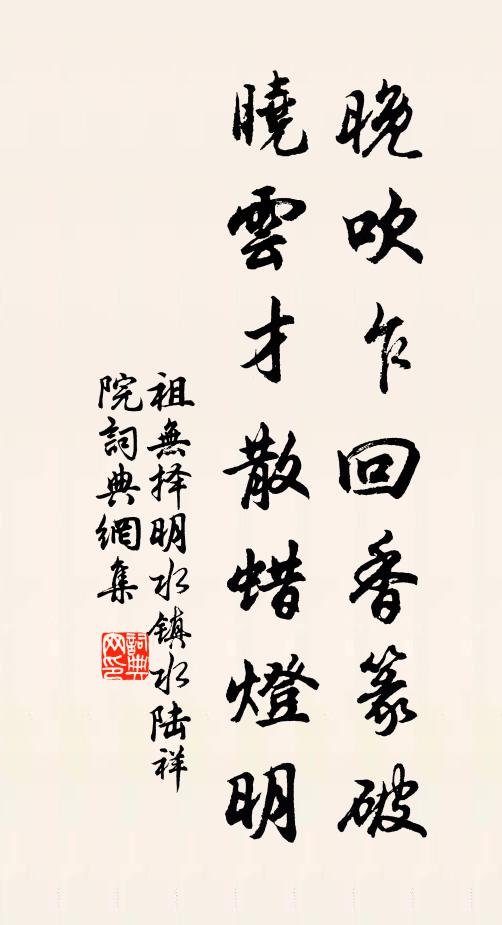 晚吹乍回香篆破
曉雲才散蜡燈明
祖無择明水镇水陆祥
院詞典網集
詞典
网印